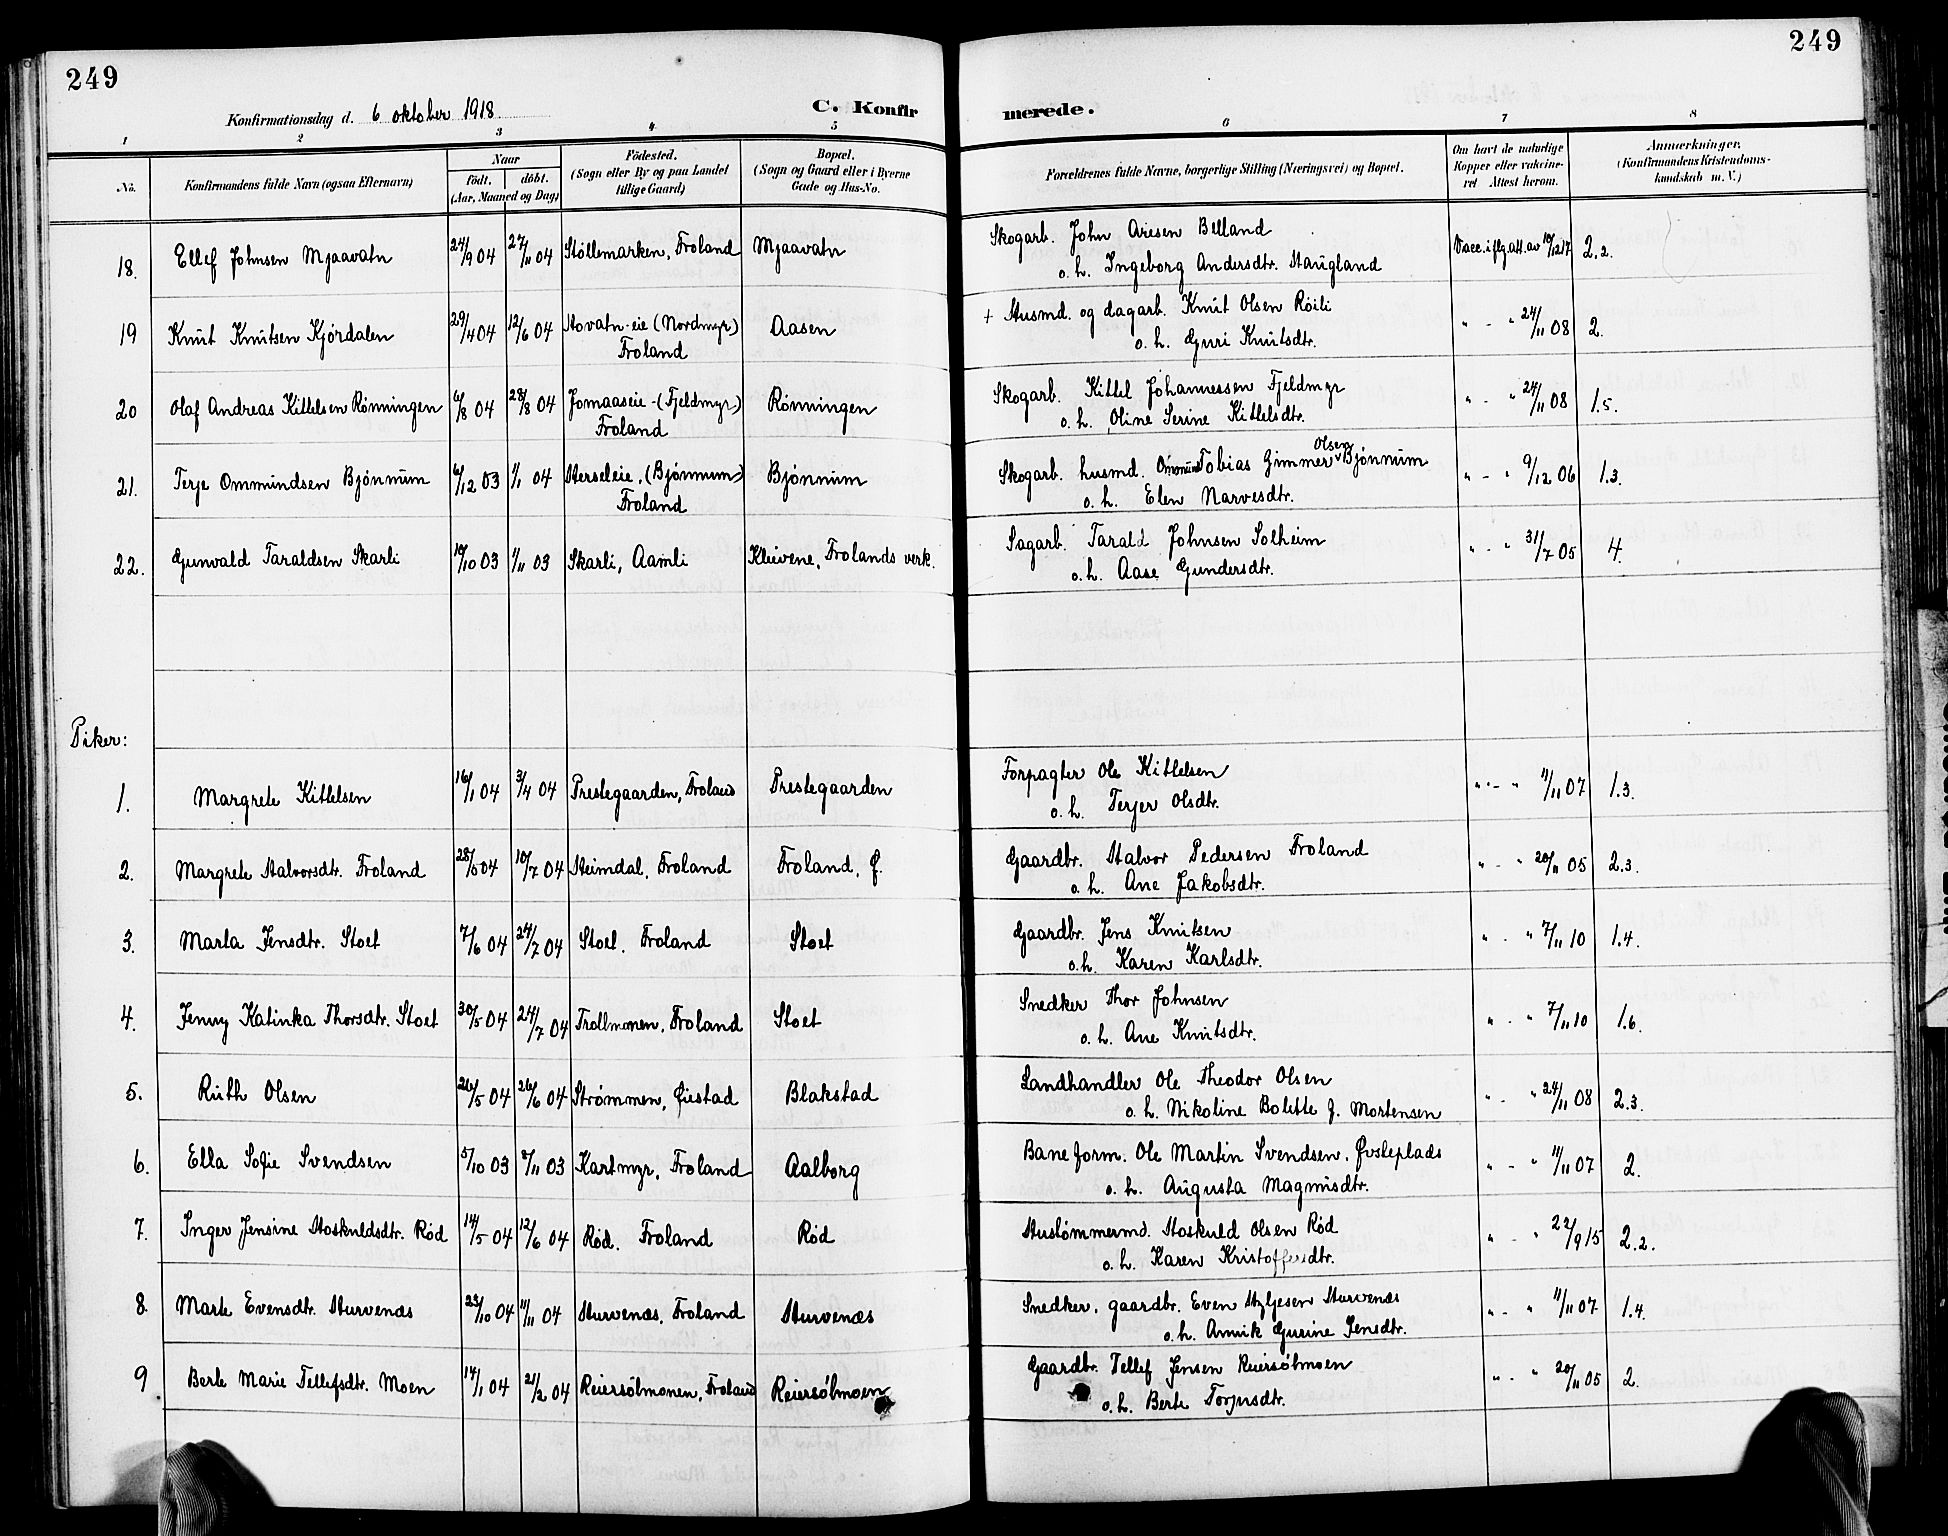 249
249
Konfirmationsdag d. 6 oktober 1918.
C. Konfirmerede.
1 2 3 4 5 6 7 8
No.
Konfirmandens fulde Navn (ogsaa Efternavn)
Naar
födt. döbt.
(Aar, Maaned og Dag)
Födested.
(Sogn eller By og paa Landet
tillige Gaard)
Bopæl.
(Sogn og Gaard eller i Byerne
Gade og Hus-No.
Forældrenes fulde Navne, borgerlige Stilling (Næringsvei) og Bopæl.
Om havt de naturlige
Kopper eller vakcine-
ret Attest herom.
Anmærkninger.
(Konfirmandens Kristendoms-
kundskab m. V.)
18. Ellef Johnsen Mjaavatn 24/9 04 27/11 04 Støllemarken, Froland Mjaavatn Skogarb. John Aresen Belland Vacc. iflg. att. av 10/12 17 2.2.
o. h. Ingeborg Andersdtr. Haugland
19 Knut Knutsen Kjørdalen 29/4 04 12/6 04 Hovatn-eie (Nordmyr) Aasen + Husmd. og dagarb. Knut Olsen Røili " - " 24/11 08 2.
Froland o. h. Guri Knutsdtr.
20 Olaf Andreas Kittelsen Rønningen 6/8 04 28/8 04 Jomaaseie - (Fjeldmyr) Rønningen Skogarb. Kittel Johannessen Fjeldmyr " - " 24/11 08 1.5.
Froland o. h. Oline Serine Kittelsdtr.
21. Terje Ommundsen Bjønnum 6/12 03 1/1 04 Herseleie, (Bjønnum) Bjønnum Skogarb. husmd. Ommund Tobias Gimmer Olsen Bjønnum " - " 9/12 06 1.3.
Froland o. h. Elen Narvesdtr.
22. Gunvald Taraldsen Skarli 19/10 03 1/11 03 Skarli, Aamli Kleivene, Frolands verk. Sagarb. Tarald Johnsen Solheim " - " 31/7 05 4.
o. h. Aase Gundersdtr.
Piker:
1. Margrete Kittelsen 16/1 04 3/4 04 Prestegaarden, Froland Prestegaarden Forpagter Ole Kittelsen " - " 11/11 07 1.3.
o. h. Terjer Olsdtr.
2. Margrete Halvorsdtr. Froland 28/5 04 10/7 04 Heimdal, Froland Froland, Ø. Gaardbr. Halvor Pedersen Froland " - " 20/11 05 2.3.
o. h. Ane Jakobsdtr.
3. Marta Jensdtr. Stoet 7/6 04 24/7 04 Stoet. Froland Stoet Gaardbr. Jens Knutsen " - " 7/11 10 1.4.
o. h. Karen Karlsdtr.
4. Jenny Katinka Thorsdtr. Stoet 30/5 04 24/7 04 Trollmonen, Froland Stoet Snedker Thor Johnsen " - " 7/11 10 1.6.
o. h. Ane Knutsdtr.
5. Ruth Olsen 26/5 04 26/6 04 Strømmen, Øiestad Blakstad Landhandler Ole Theodor Olsen " - " 24/11 08 2.3.
o. h. Nikoline Bolette f. Mortensen
6. Ella Sofie Svendsen 5/10 03 8/11 03 Kartmyr, Froland Aalborg Baneform. Ole Martin Svendsen, Øvsteplads " - " 11/11 07 2.
o. h. Augusta Magnusdtr.
7. Inger Jensine Hoskuldsdtr. Rød 14/5 04 12/6 04 Rød. Froland Rød Hustømmermd. Hoskuld Olsen Rød " - " 22/9 15 2.2.
o. h. Karen Kristoffersdtr.
8. Marte Evensdtr. Hurvenæs 23/10 04 11/11 04 Hurvenæs, Froland Hurvenæs Snedker, gaardbr. Even Stiljesen Hurvenæs " - " 11/11 07 1.4.
o. h. Annik Gurine Jensdtr.
9 Berte Marie Tellefsdtr. Moen 14/1 04 21/2 04 Reiersølmonen, Froland Reiersølmoen Gaardbr. Tellef Jensen Reiersølmoen " - " 20/11 05 2.
o. h. Berte Torjusdtr.